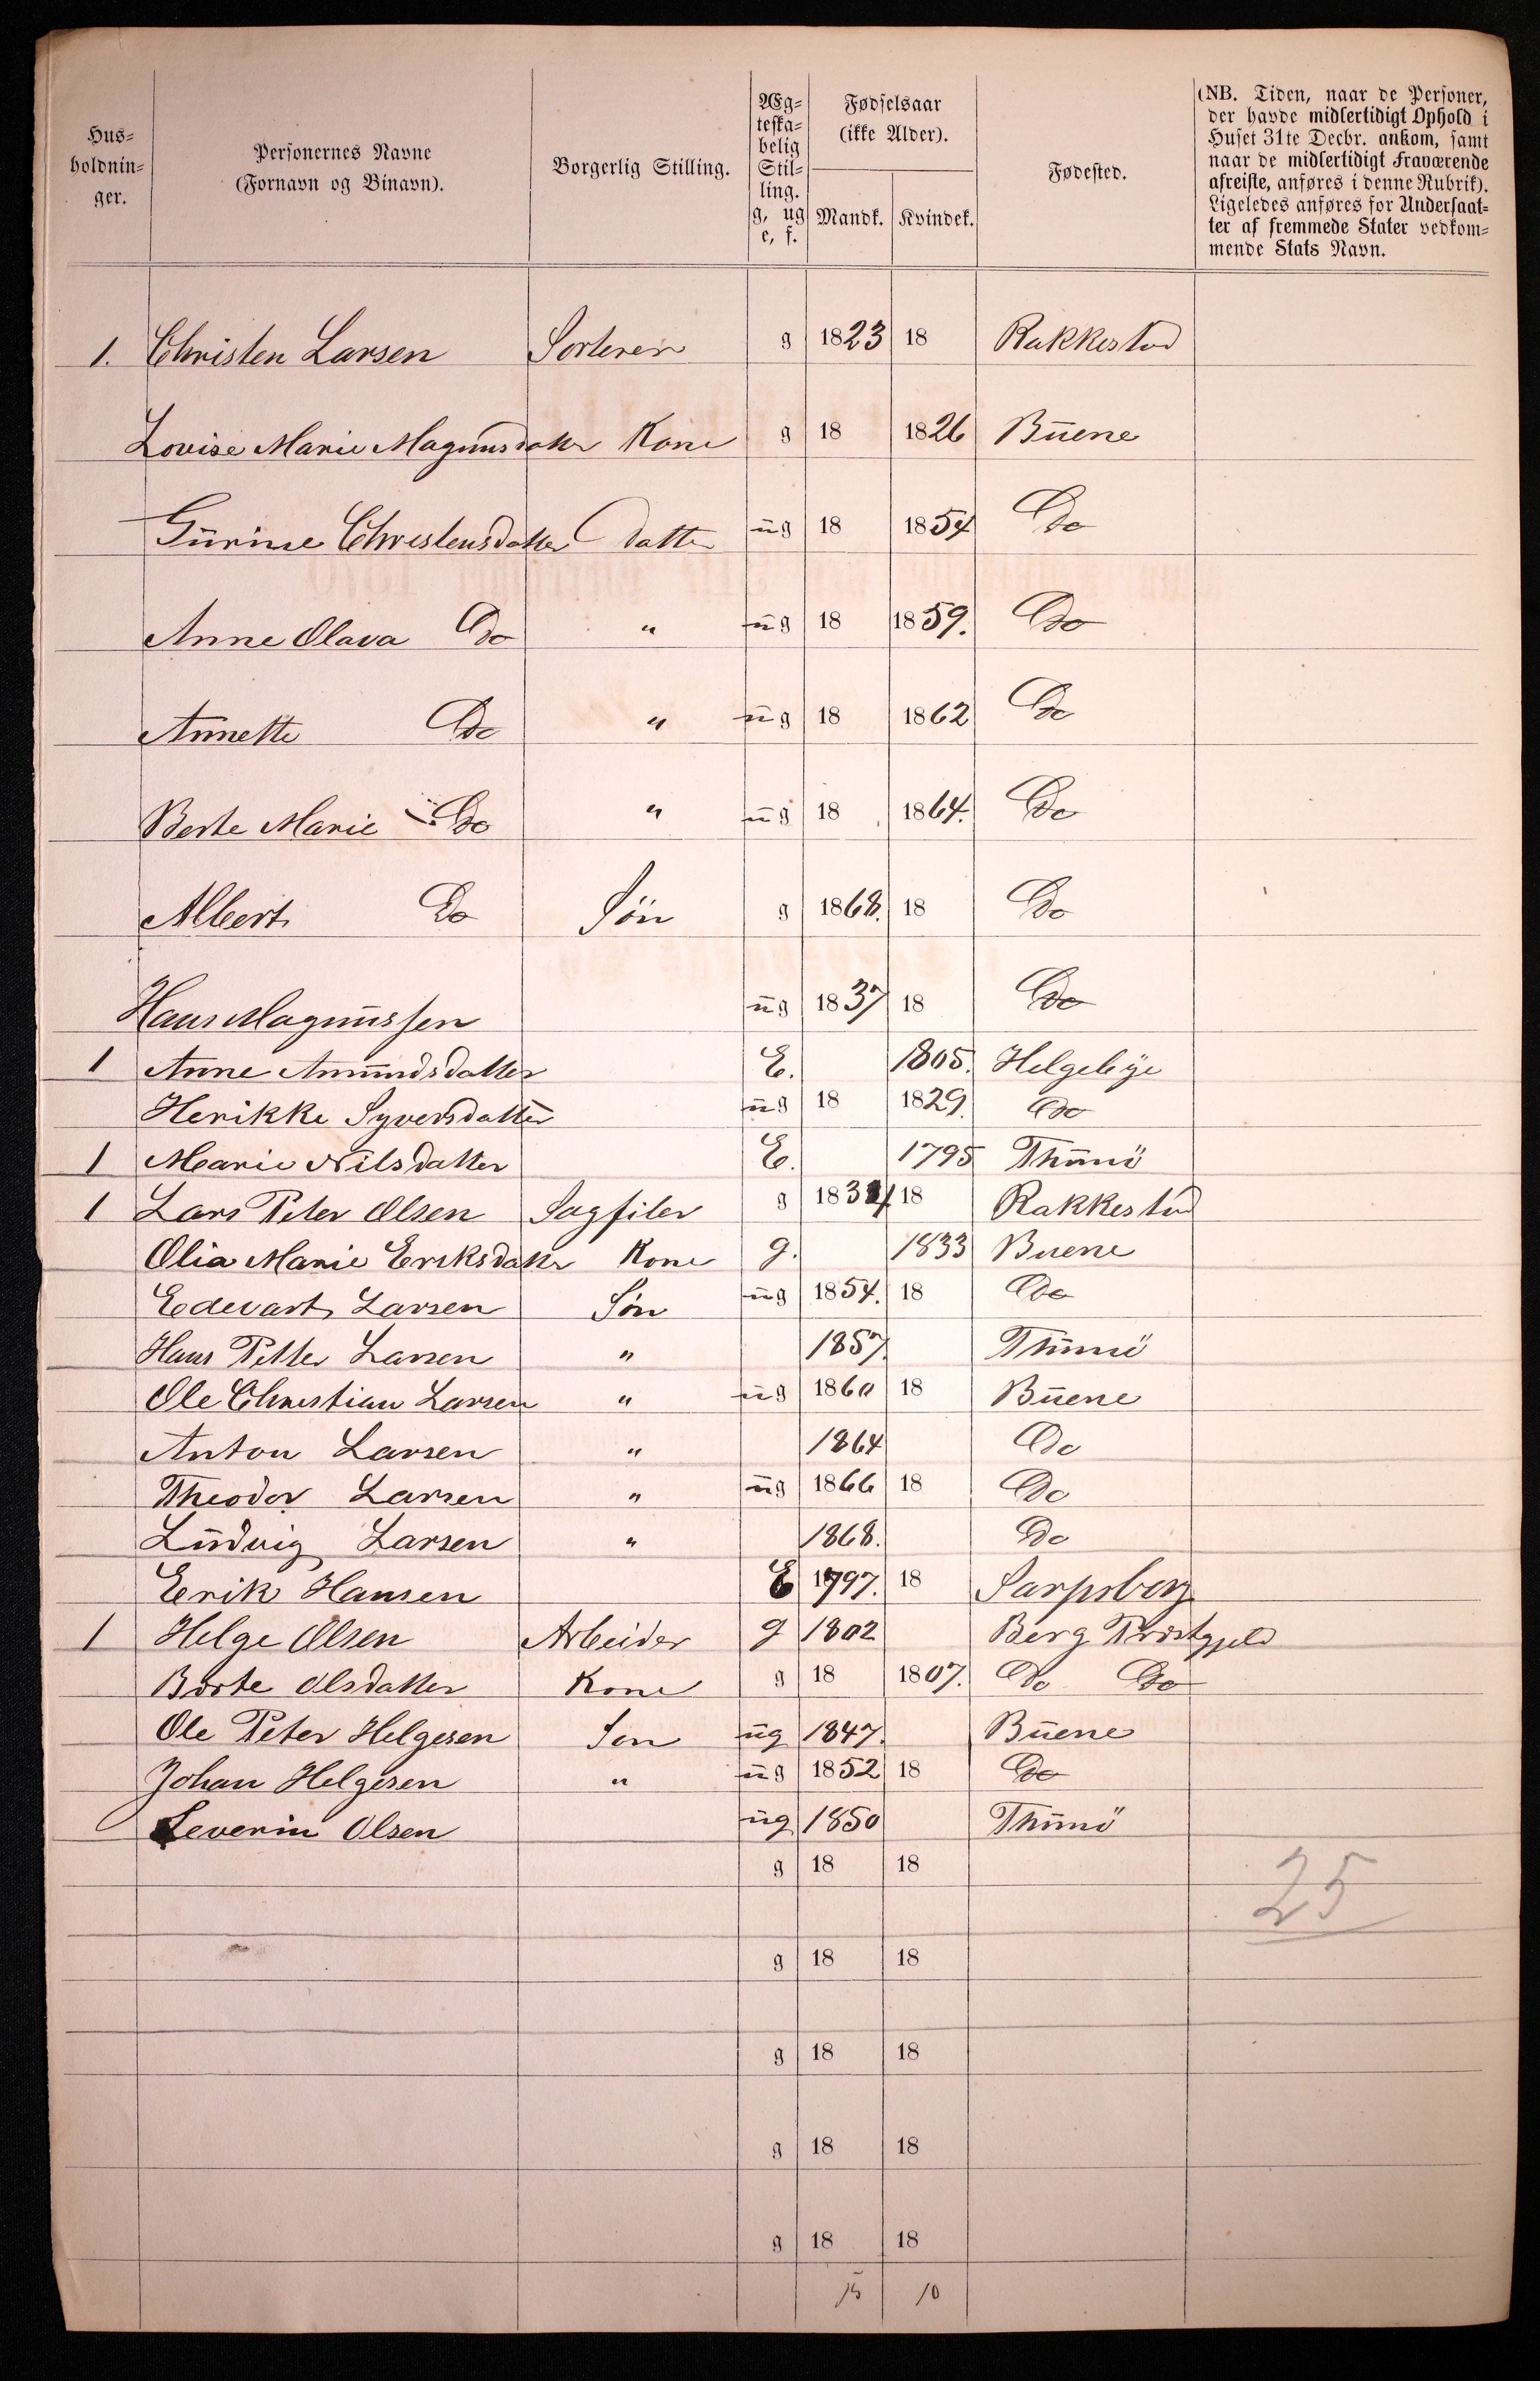 Hus-
holdnin-
ger.
Personernes Navne
(Fornavn og Binavn).
Borgerlig Stilling.
Æg-
teska-
belig
Stil-
ling.
g, ug
e, f.
Fødselsaar
(ikke Alder).
Mandk. Kvindek.
Fødested.
(NB. Tiden, naar de Personer,
der havde midlertidigt Ophold i
Huset 31te Decbr. ankom, samt
naar de midlertidigt Fraværende
afreiste, anføres i denne Rubrik).
Ligeledes anføres for Undersaat-
ter af fremmede Stater vedkom-
mende Stats Navn.
1. Christen Larsen Sorterer g 1823 18 Rakkestad
Lovise Marie Magnusdatter Kone g 18 1826 Buene
Gurine Christensdatter datter ug 18 1854 Do
Anne Olava Do " ug 18 1859. Do
Annette Do " ug 18 1862 Do
Berte Marie Do " ug 18 1864. Do
Albert Do Søn g 1868. 18 Do
Hans Magnussen ug 1837 18 Do
1 Anne Amundsdatter E. 1805. Helgebye
Henikke Syversdatter ug 18 1829. Do
1 Marie Nilsdatter E. 1795 Thunø
1 Lars Peter Olsen Sagfiler g 1834 18 Rakkestad
Olia Marie Eriksdatter Kone g. 1833 Buene
Edevart Larsen Søn ug 1854. 18 Do
Hans Petter Larsen " 1857. Thunø
Ole Christian Larsen " ug 1860 18 Buene
Anton Larsen " 1864 Do
Theodor Larsen " ug 1866 18 Do
Ludvig Larsen " 1868. Do
Erik Hansen E 1797. 18 Sarpsborg
1 Helge Olsen Arbeider g 1802 Berg Præstgjeld
Børte Olsdatter Kone g 18 1807. Do Do
Ole Peter Helgesen Søn ug 1847. Buene
Johan Helgesen " ug 1852 18 Do
Severin Olsen ug 1850 Thunø
g 18 18
25
g 18 18
g 18 18
g 18 18
g 18 18
15 10